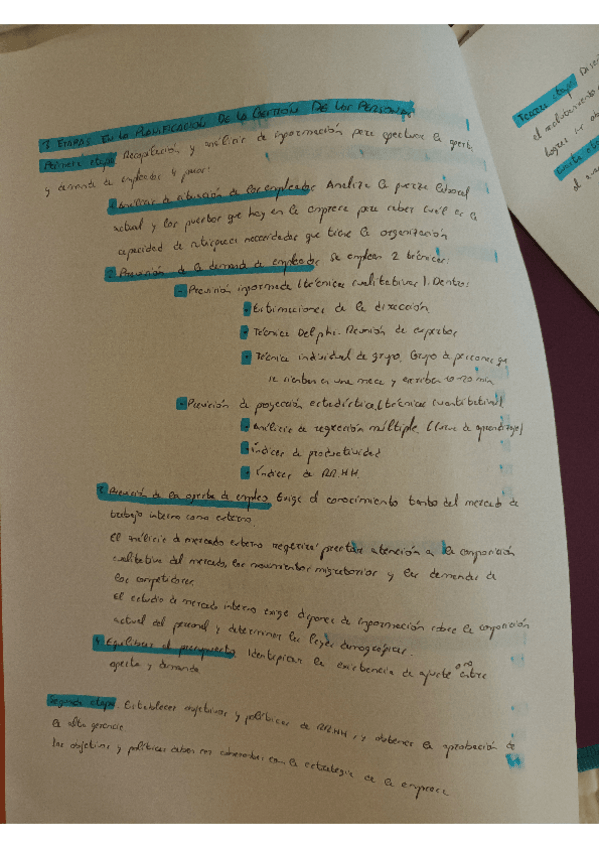 3 ETAPAS EN LA PLANIFICACIÓN DE LA GESTIÓN DE LAS PERSONAS
Primera etapa Recopilación y análisis de información para efectuar la oferta
y demanda de empleados 4 pasos:
Análisis de situación de los empleados Analiza la fuerza laboral
actual y los puestos que hay en la empresa para saber cuál es la
capacidad de satisfacer necesidades que tiene la organización
2 Previsión de la demanda de empleados Se emplean 2 técnicas:
- Previsión informada (técnicas cualitativas). Dentro:
• Estimaciones de la dirección
• Técnica Delphi. Reunión de expertos
• Técnica individual de grupo. Grupo de personas que
se sientan en una mesa y escriben 10-20 min
- Previsión de proyección estadística (técnicas cuantitativas)
• Análisis de regresión múltiple. (curva de aprendizaje)
• Índices de productividad
• Índices de RR.HH.
3 Previsión de la oferta de empleo Exige el conocimiento tanto del mercado de
trabajo interno como externo.
El análisis de mercado externo requerirá prestar atención a la composición
cualitativa del mercado, los movimientos migratorios y las demandas de
los competidores.
El estudio de mercado interno exige disponer de información sobre la composición
actual del personal y determinar las leyes demográficas.
4 Equilibrar el presupuesto Identificar la existencia de ajuste o no entre
oferta y demanda
Segunda etapa. Establecer objetivos y políticas de RR.HH, y obtener la aprobación de
la alta gerencia
Los objetivos y políticas deben ser coherentes con la estrategia de la empresa
Tercera etapa Diseñ
el reclutamiento
lograr
Cuarta eta
el